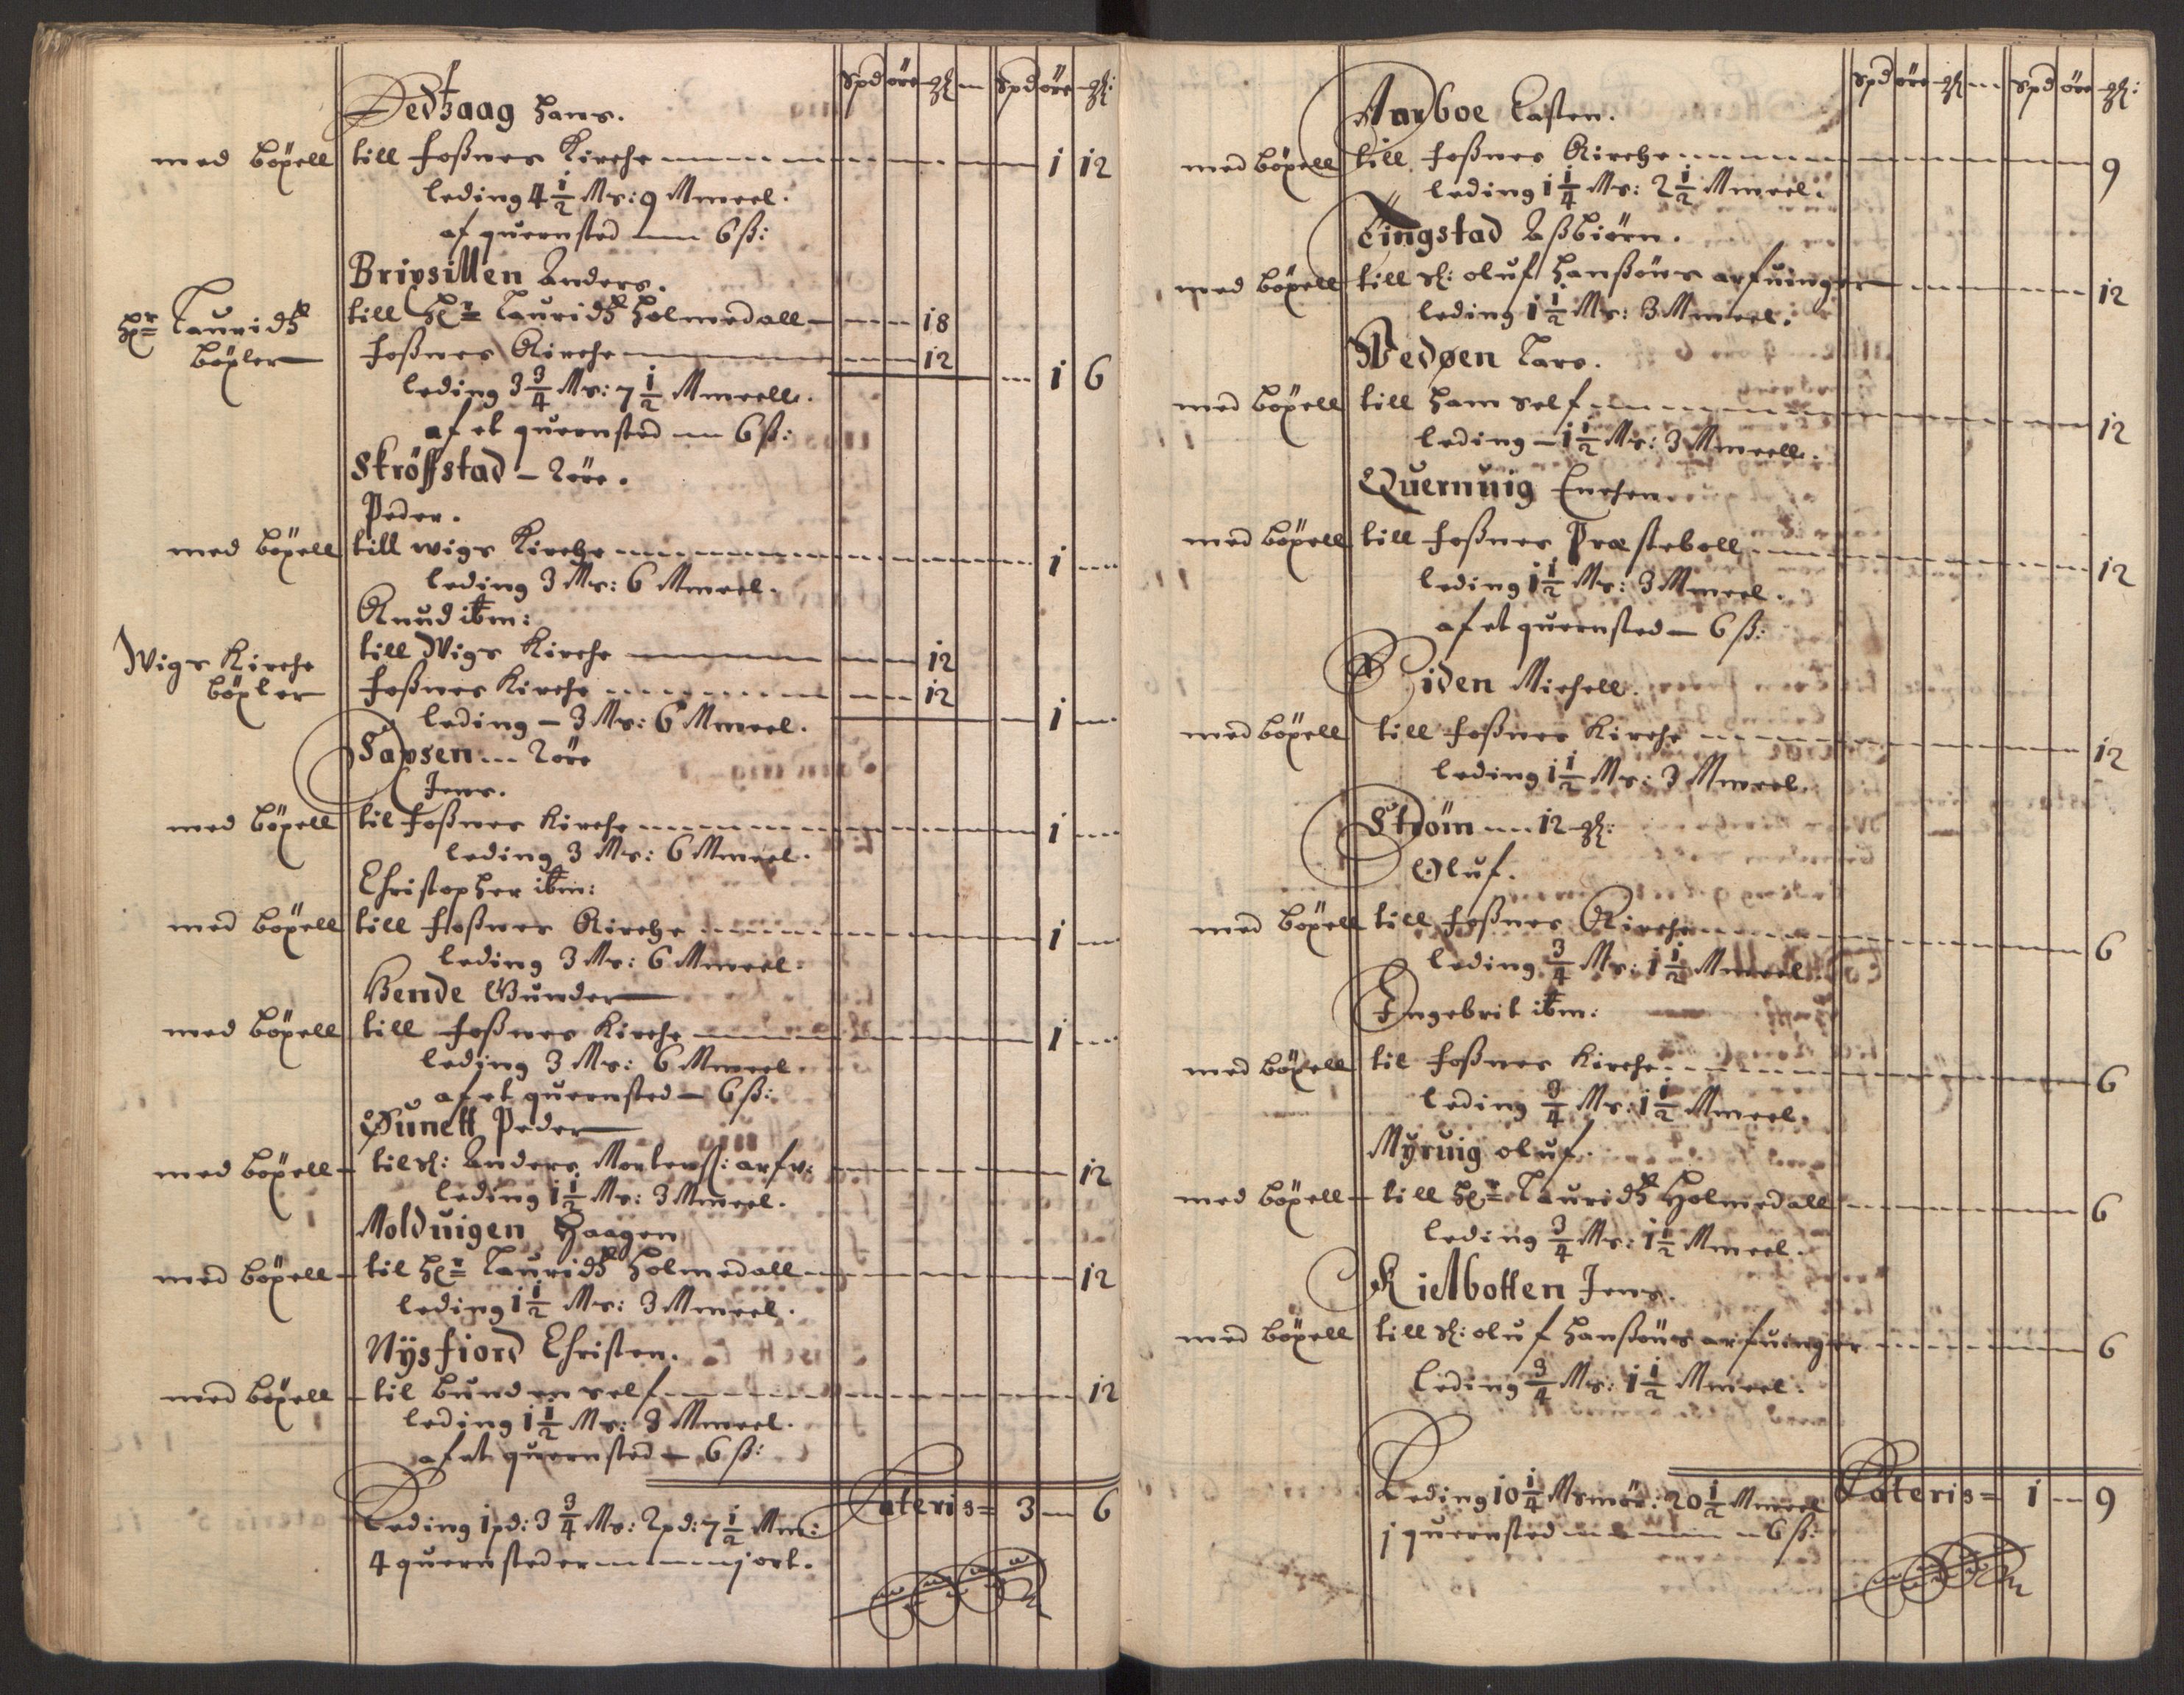 Spd öre gl: Spd öre gl:
Dedhaag Hans.
med böxell till Foßnes Kirche 1 12
leding 4 1/2 Mr: 9 Mmeel.
af quernsted 6 ß:
Bripsillen Anders.
till Hr Lauridß Holmedall 18
Hr Lauridß böxler
Foßnes Kirche 12
1 6
leding 3 3/4 Mr: 7 1/2 Mmeell.
af et quernsted 6 ß:
Ströffstad 2 öre.
Peder.
med böxell till wigs Kirche 1
leding 3 Mr: 6 Mmeel.
Knud ibm:
till Wigs Kirche 12
Wigs Kirche böxler
Foßnes Kirche 12
leding 3 Mr: 6 Mmeel. 1
Sapsen 2 öre
Jens.
med böxell til Foßnes Kirche 1
leding 3 Mr: 6 Mmeel.
Christopher ibm:
med böxell till Foßnes Kirche 1
leding 3 Mr: 6 Mmeel:
Hende Gunder
med böxell till Foßnes Kirche 1
leding 3 Mr: 6 Mmeel.
af et quernsted 6 ß:
Dunett Peder
med böxell til Sl: Anders Mortenß: arfv: 12
leding 1 1/2 Mr: 3 Mmeel.
Molduigen Haagen
med böxell til Hr Lauridß Holmedall 12
leding 1 1/2 Mr: 3 Mmeel.
Nysfiord Christen.
med böxell til bunden self 12
leding 1 1/2 Mr: 3 Mmeel.
af et quernsted 6 ß:
Leding 1 pd: 3 3/4 Mr: 2 pd: 7 1/2 Mm: Lateris = 3 6
4 quernsteder j ort.
Spd öre gl: Spd öre gl:
Aarboe Casten.
med böxell till Foßnes Kirche 9
leding 1 1/4 Mr: 2 1/2 Mmeel.
Tingstad Aßbiörn.
med böxell till Sl: oluf Hanßöns arfuinger 12
leding 1 1/2 Mr: 3 Mmeel.
Wedøen Lars.
med böxell till ham self 12
leding 1 1/2 Mr: 3 Mmeell.
Quernuig Enchen
med böxell till Foßnes Præsteboll 12
leding 1 1/2 Mr: 3 Mmeel.
af et quernsted 6 ß:
Eiden Michell.
med böxell till Foßnes Kirche 12
leding 1 1/2 Mr: 3 Mmeel.
Ström 12 gl:
Oluf.
med böxell till Foßnes Kirche 6
leding 3/4 Mr: 1 1/2 Mmeel
Engebrit ibm:
med böxell til Foßnes Kirche 6
leding 3/4 Mr: 1 1/2 Mmeel.
Myruig oluf.
med böxell till Hr Lauridß Holmedall 6
leding 3/4 Mr: 1 1/2 Mmeel.
Kielbotten Jens.
med böxell till Sl: oluf Hanßöns arfuinger 6
leding 3/4 Mr: 1 1/2 Mmeel.
Leding 10 1/4 Msmör: 20 1/2 Mmeel Lateris = 1 9
j quernsted 6 ß: